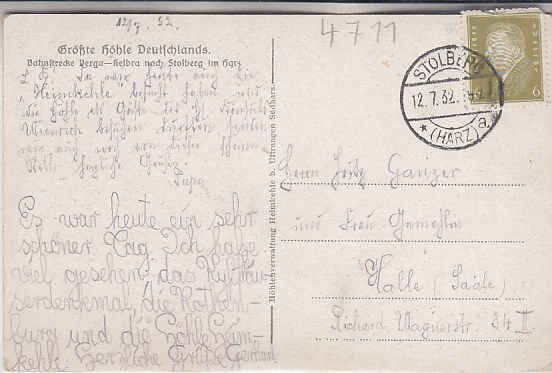 12/7. 32.
4711
Größte Höhle Deutschlands.
Bahnstrecke Berga—Kelbra nach Stolberg im Harz
L. K. Da wir heute auf die
"Heimkehle" besucht haben und
die Höhle als Gäste des H. Konsuls
besuchen durften, denken
wir auch von dieser schönen
herzliche Grüße
Papa
Es war heute ein sehr
schöner Tag. Ich habe
viel gesehen: das Kyffhäu-
serdenkmal, die Rothen-
burg und die Höhle Heim-
kehle. Herzliche Grüße Gerhart.
Höhlenverwaltung Heimkehle b. Uftrungen Südharz.
STOLBERG
12.7.32.
* (HARZ) a
6
Herrn Fritz Ganzer
und Frau Gemahlin
Halle (Saale)
Richard Wagnerstr. 34 II